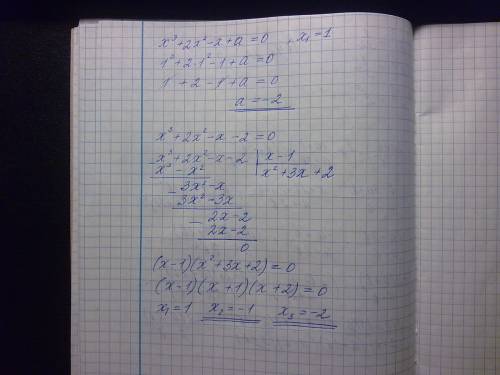 x³+2x²-x+a=0 , x₁=1
1³+2·1²-1+a=0
1+2-1+a=0
a=-2
x³+2x²-x-2=0
x³+2x²-x-2 | x-1
x³-x² | x²+3x+2
3x²-x
3x²-3x
2x-2
2x-2
0
(x-1)(x²+3x+2)=0
(x-1)(x+1)(x+2)=0
x₁=1 x₂=-1 x₃=-2